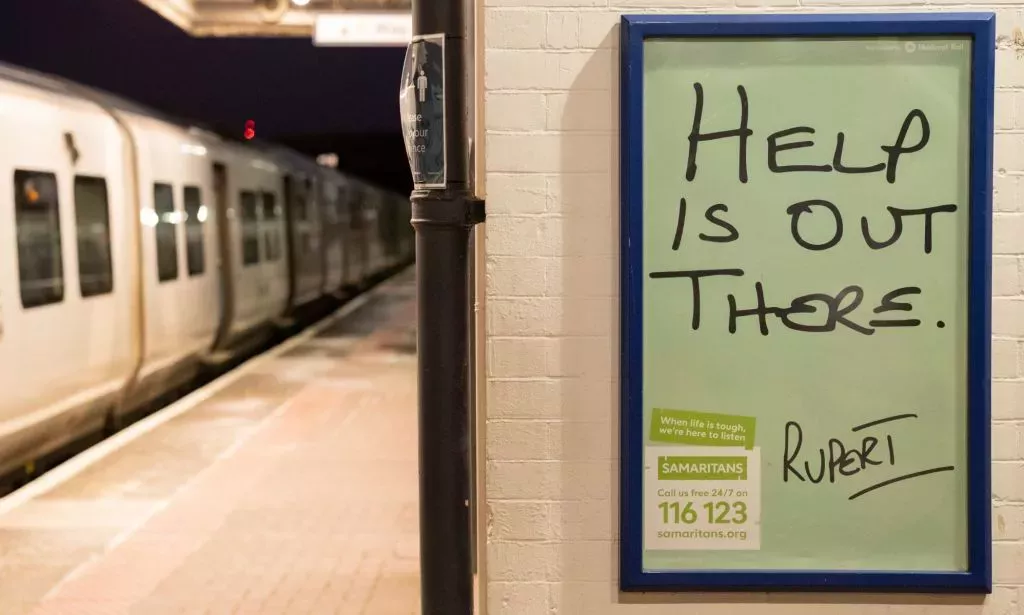 National Rail
HELP
IS OUT
THERE.
RUPERT
When life is tough,
we're here to listen
SAMARITANS
Call us free 24/7 on
116 123
samaritans.org
your